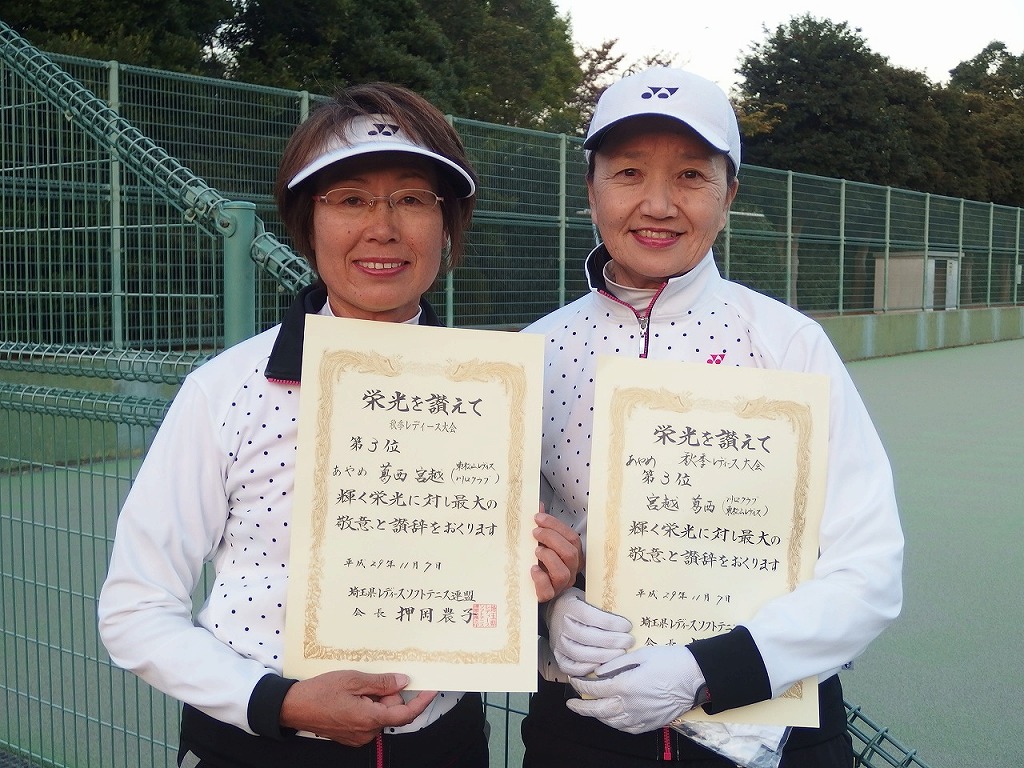 栄光を讃えて
秋季レディース大会
第3位
あやめ 葛西 宮越 (東松山レディス
川口クラブ)
輝く栄光に対し最大の
敬意と讃辞をおくります
平成29年11月7日
埼玉県レディースソフトテニス連盟
会長 押岡農子
栄光を讃えて
あやめ 秋季レディース大会
第3位
宮越 葛西 (川口クラブ
東松山レディス)
輝く栄光に対し最大の
敬意と讃辞をおくります
平成29年11月7日
埼玉県レディースソフトテニ
会長